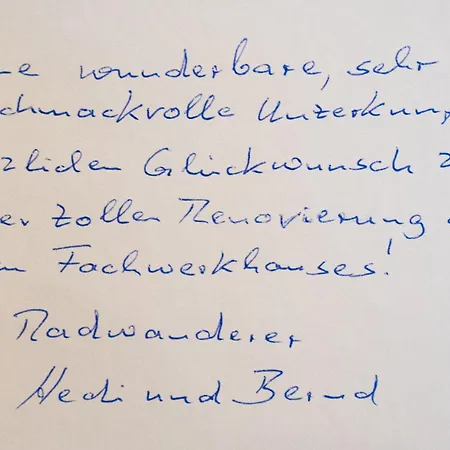 ne wunderbare, sehr
chmackvolle Unterkun
zlichen Glückwunsch z
er tollen Renovierung
n Fachwerkhauses!
Radwanderer
Hedi und Bernd